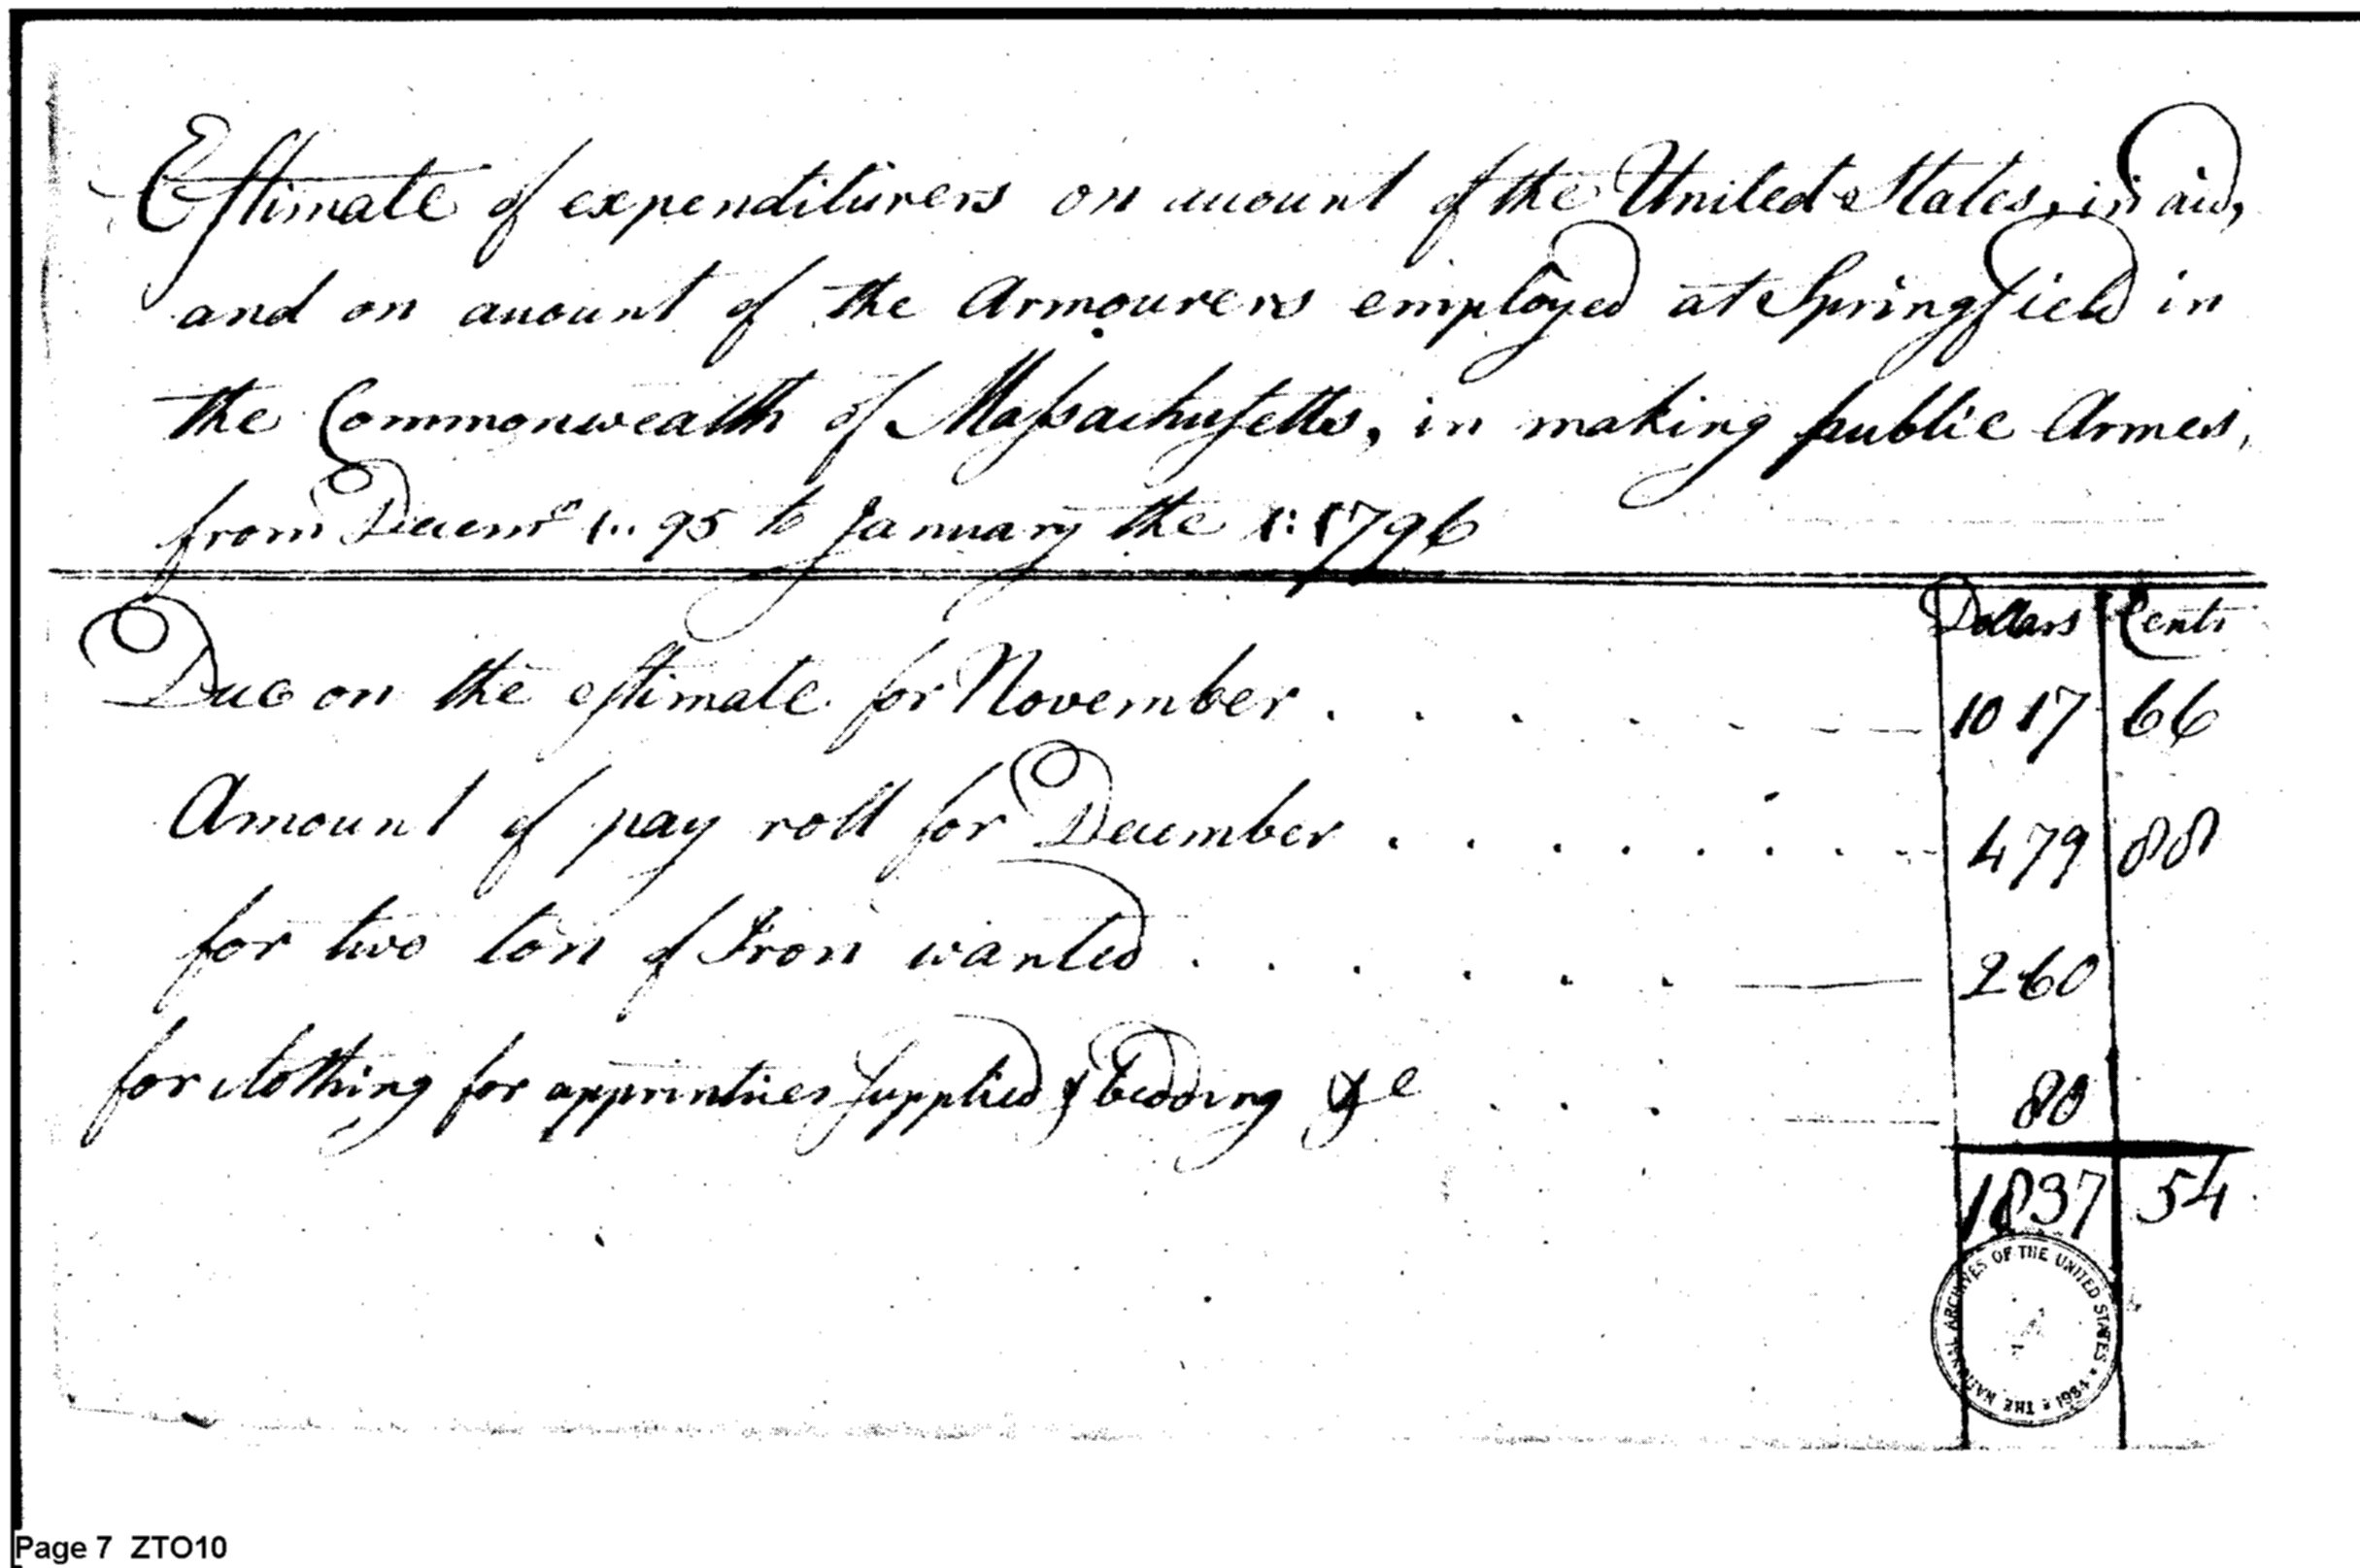 Estimate of expenditurers on account of the United States, in aid,
and on account of the Armourers employed at Springfield in
the Commonwealth of Massachusetts, in making public Armes,
from Decemr 1.. 95 to January the 1: 1796
Dollars Cents
Due on the estimate for November . . . . . . 1017 66
Amount of pay roll for December . . . . . . . 479 88
for two ton of Iron wanted . . . . . . 260
for clothing for apprintices supplied & bedding &c . . . 80
1837 54
THE NATIONAL ARCHIVES OF THE UNITED STATES 1934
Page 7 ZTO10